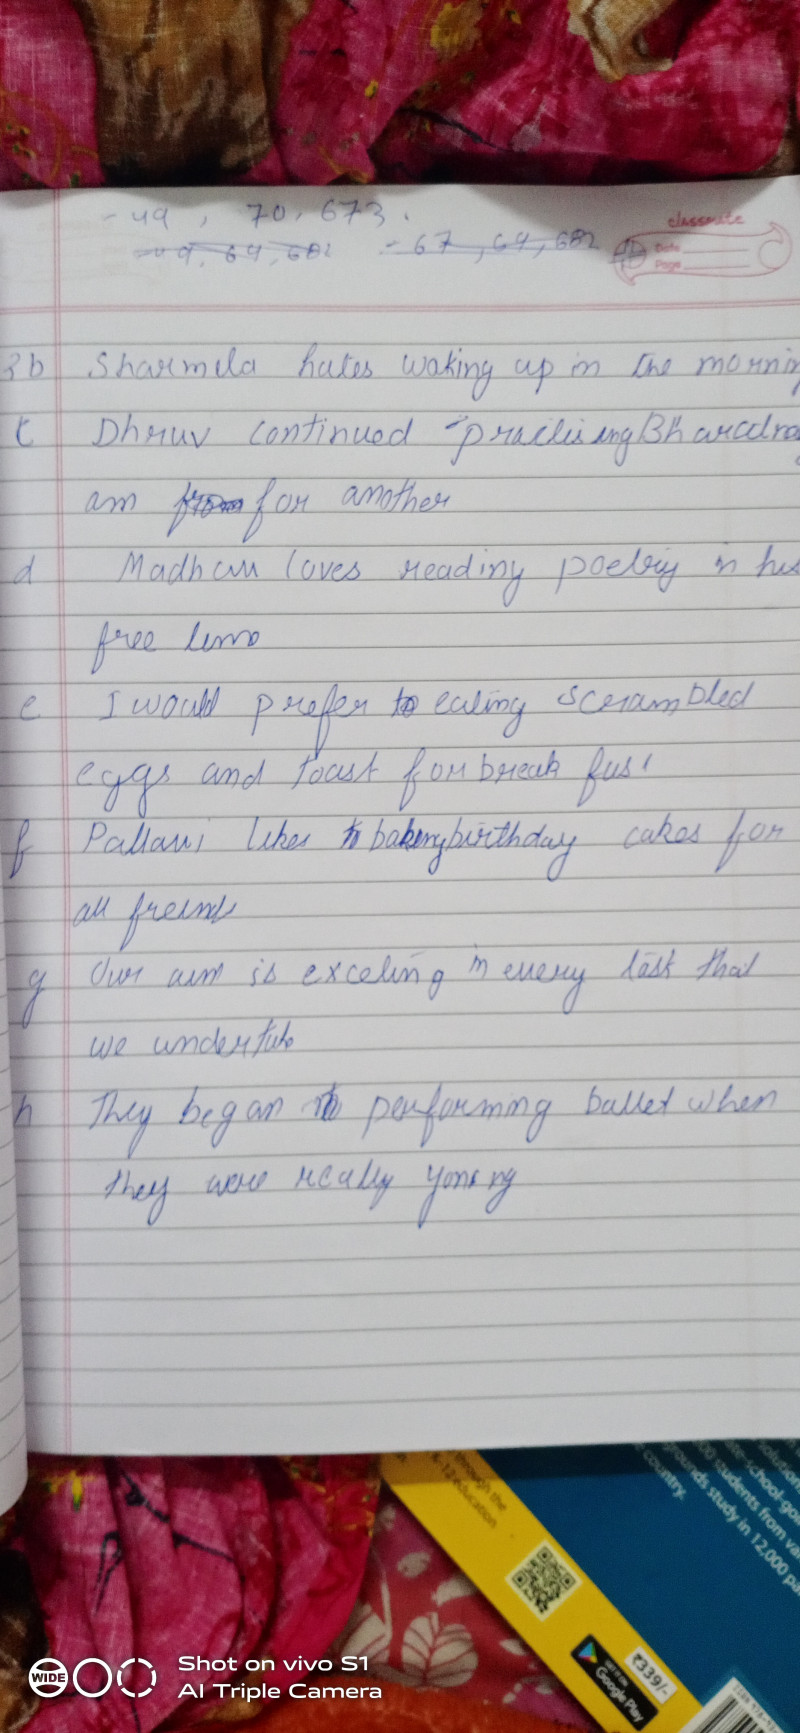 - 49, 70, 673.
classmate
Date
Page
- 67, 64, 682
3b Sharmila hates waking up in the mornin
c Dhruv continued practising Bharadna
am from for another
d Madhav loves reading poetry in his
free time
e I would prefer to eating scrambled
eggs and toast for break fast
f Pallavi likes to baking birthday cakes for
all freinds
g Our aim is exceling in every task that
we undertake
h They began to performing ballet when
they were really young
through the
K-12 education
solution
school-goi
00 students from var
grounds study in 12,000 pa
country.
GET IT ON
Google Play
₹339/-
Shot on vivo S1
WIDE
AI Triple Camera